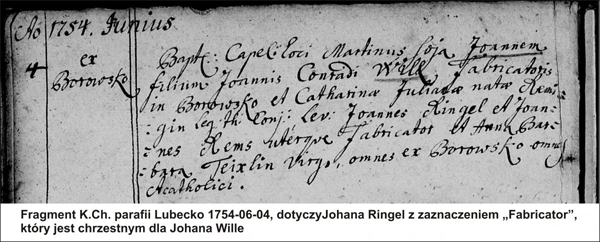 Ao 1754. Junius
4
ex
Borowsko
Bapt: Capel: loci Martinus Soja Joannem
filium Joannis Conradi Will Fabricatoris
in Borowsko et Catharinæ Julianæ natæ Remi-
=gin leg: th: Conj: Lev: Joannes Ringel et Joan-
=nes Rems uterque Fabricator et Anna Bar-
=bara Teixlin Virgo, omnes ex Borowsko omnes
Acatholici.
Fragment K.Ch. parafii Lubecko 1754-06-04, dotyczyJohana Ringel z zaznaczeniem „Fabricator”,
który jest chrzestnym dla Johana Wille